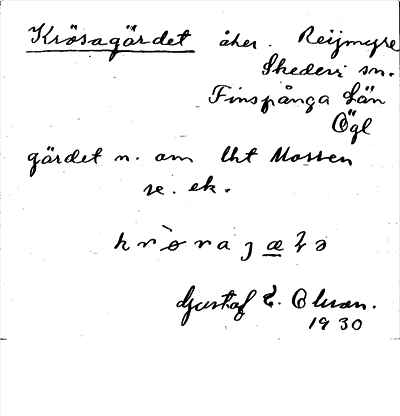 Krösagärdet åker. Reijmyre
Skedevi sn.
Finspånga Län
Ögl
gärdet n. om Utt Mossen
se. ek.
Gustaf E. Olsson.
1930